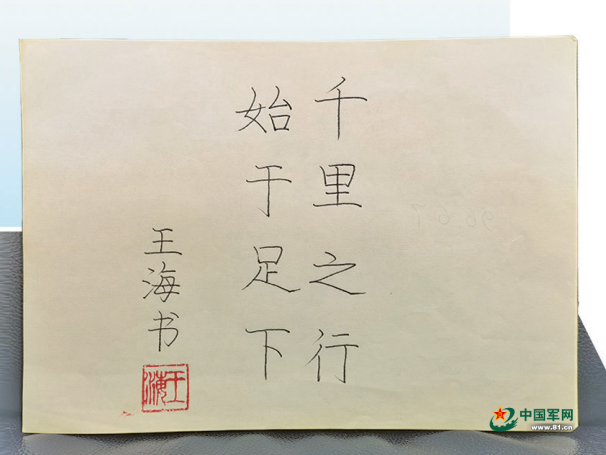 千里之行
始于足下
王海书
王海
中国军网
www.81.cn